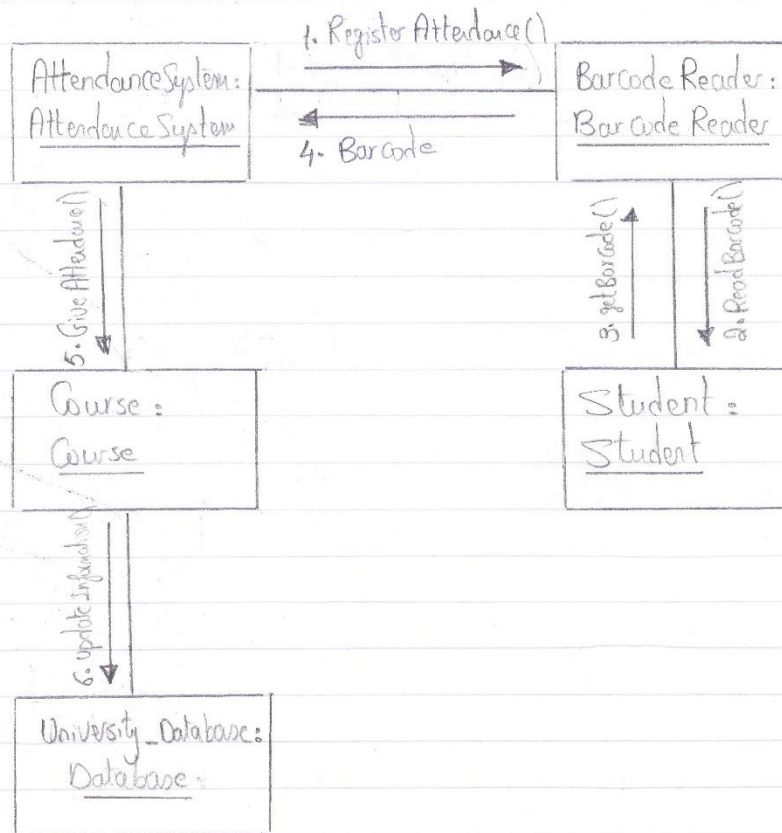 1. Register Attendance()
AttendanceSystem:
AttendanceSystem
BarcodeReader:
BarcodeReader
4. Barcode
5. GiveAttendance()
3. getBarcode()
2. ReadBarcode()
Course:
Course
Student:
Student
6. updateInformation()
University_Database:
Database